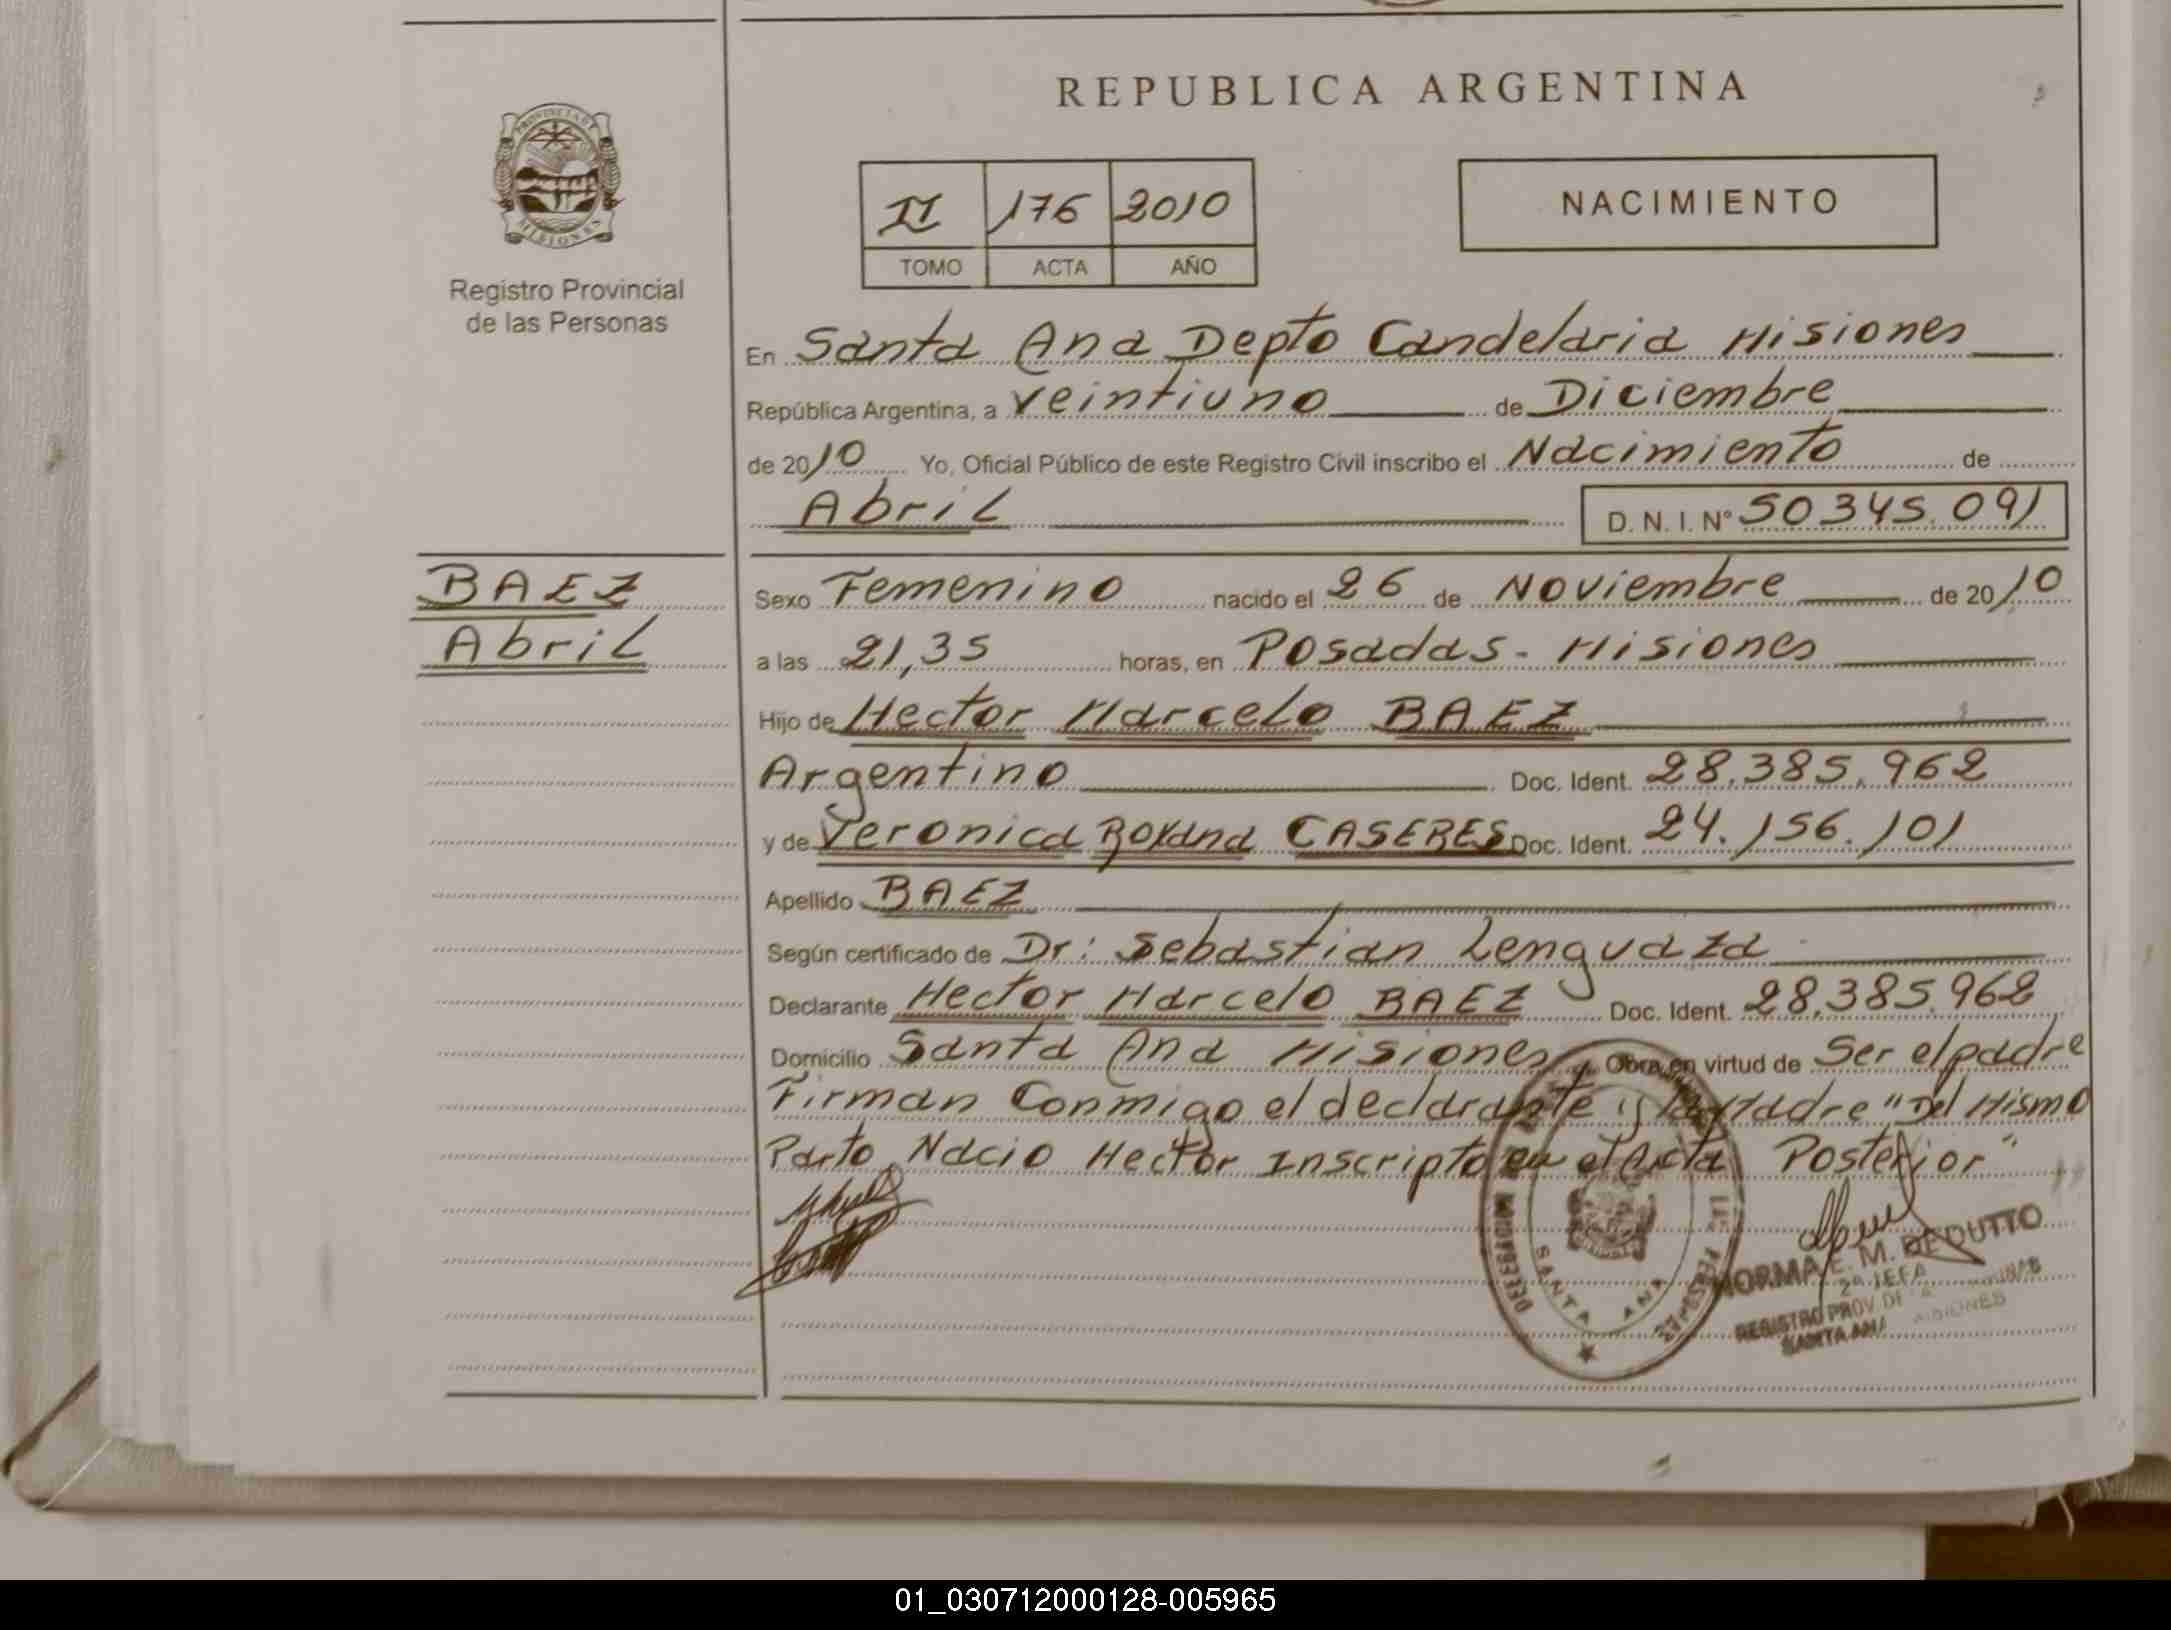 REPUBLICA ARGENTINA
PROVINCIA DE
MISIONES
Registro Provincial
de las Personas
II 176 2010
TOMO ACTA AÑO
NACIMIENTO
En Santa Ana Depto Candelaria Misiones
República Argentina, a Veintiuno de Diciembre
de 2010 Yo, Oficial Público de este Registro Civil inscribo el Nacimiento de
Abril D. N. I. Nº 50345.091
BAEZ
Abril
Sexo Femenino nacido el 26 de Noviembre de 2010
a las 21,35 horas, en Posadas - Misiones
Hijo de Hector Marcelo BAEZ
Argentino Doc. Ident. 28.385.962
y de Veronica Roxana CASERES Doc. Ident. 24.156.101
Apellido BAEZ
Según certificado de Dr: Sebastian Lenguaza
Declarante Hector Marcelo BAEZ Doc. Ident. 28.385.962
Domicilio Santa Ana Misiones Obra en virtud de Ser el padre
Firman Conmigo el declarante y la Madre "Del Mismo
Parto Nacio Hector Inscripto en el Acta Posterior"
SANTA ANA
NORMA E. M. DEDUTTO
2ª JEFA
REGISTRO PROV. DE
MISIONES
SANTA ANA
01_030712000128-005965